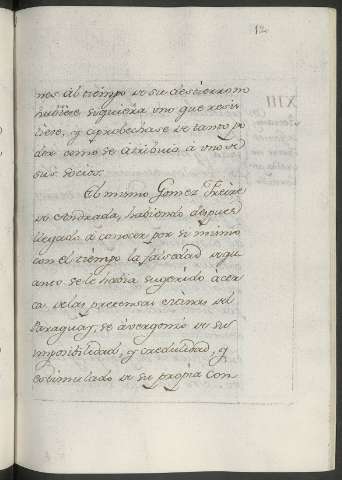 12
nes al tiempo de su destierro no
hubiese siquiera uno que resis
tiese, y aprobechase de tanto po
der como se atribuia a uno de
sus socios.
El mismo Gomez Freire
de Andrada, habiendo despues
llegado á conocer por si mismo
con el tiempo la falsedad de qu
anto se le habia sugerido acer
ca de las pretensas minas del
Paraguay, se avergonzo de su
imposibilidad, y credulidad, y
estimulado de su propia con
XIII